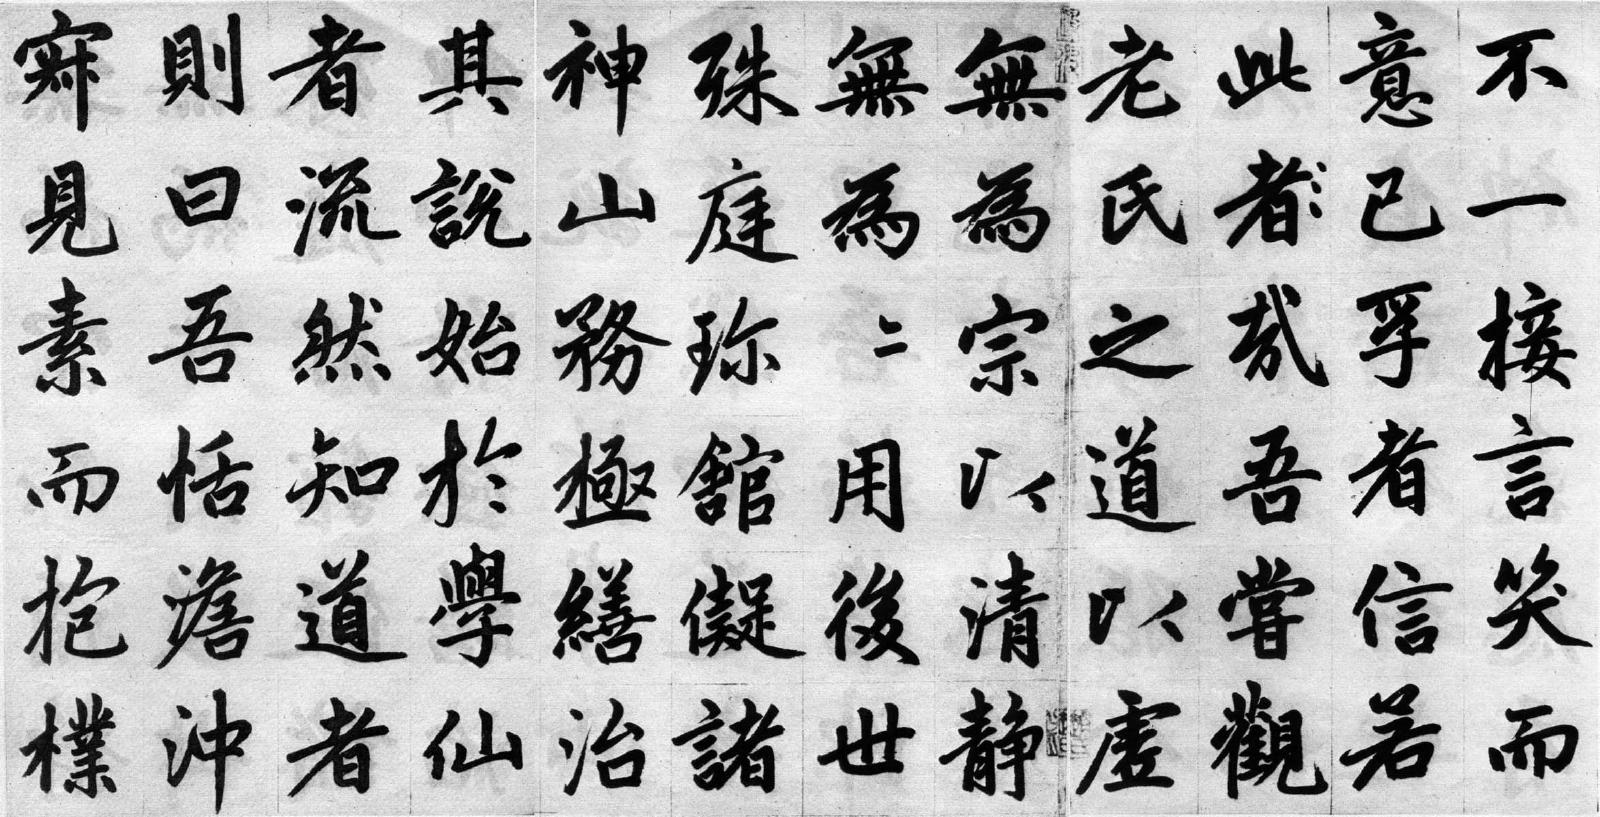 不一接言笑而
意已孚者信若
此者哉吾嘗觀
老氏之道以虛
無為宗以清靜
無為〻用後世
殊庭珎舘儗諸
神山務極繕治
其說始於學仙
者流然知道者
則曰吾恬澹沖
寂見素而抱樸